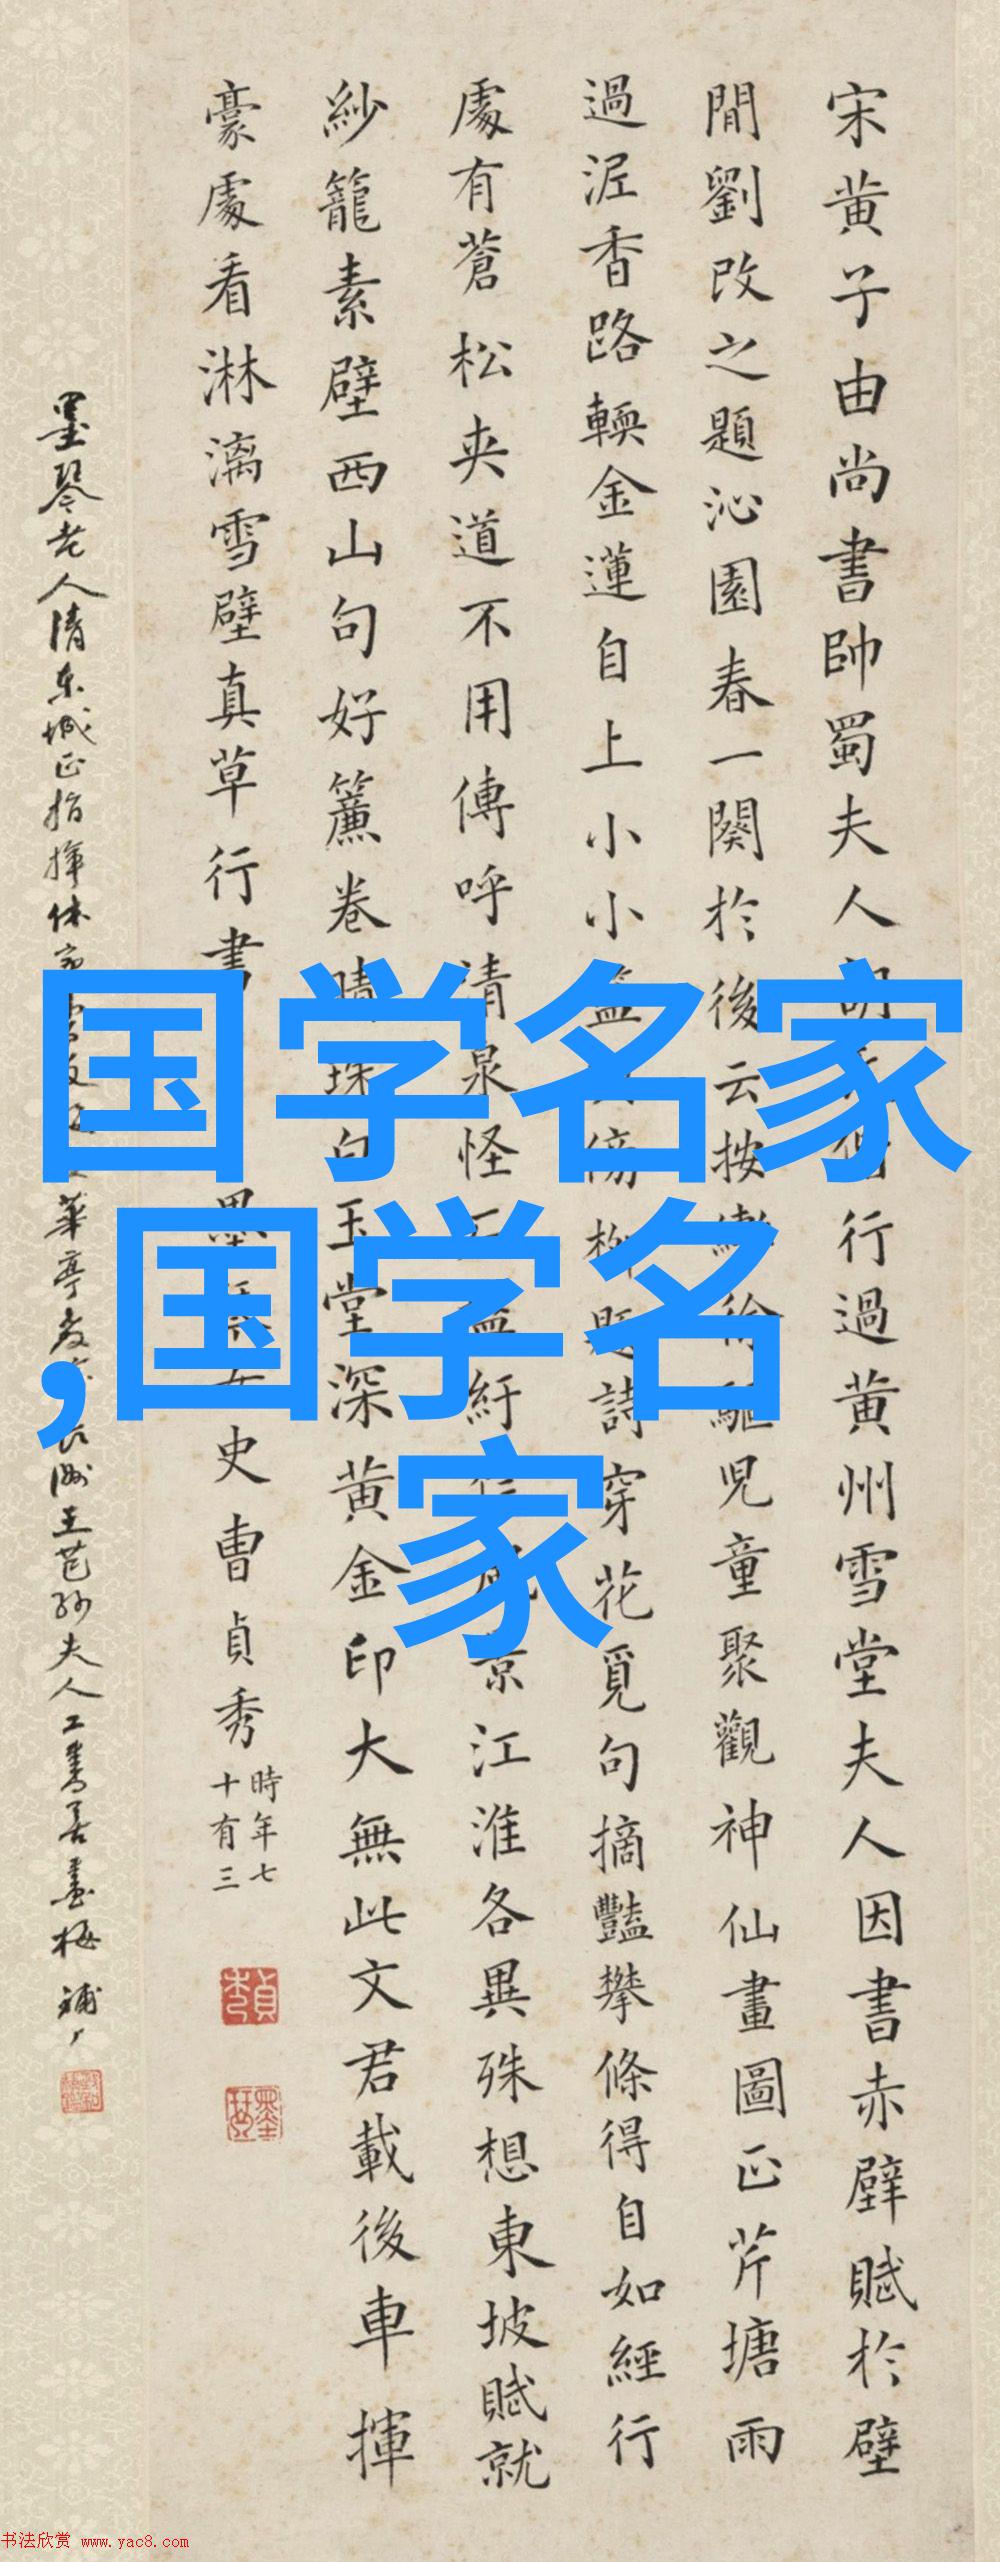 宋黄子由尚書帥蜀夫人胡 行過黄州雪堂夫人因書赤壁賦於壁
間劉改之題沁園春一闋於後云按轡徐驅児童聚觀神仙畫圖正芹塘雨
過泥香路輭金蓮自上小小籃輿傍柳題詩穿花覓句摘豔攀條得自如經行
處有蒼松夾道不用傳呼清泉怪石盤紆 景江淮各異殊想東坡賦就
紗籠素壁西山句好簾卷晴珠白玉堂深黄金印大無此文君載後車揮
豪處看淋漓雪壁真草行書 墨琴女史曹貞秀
時年七
十有三
墨琴老人清東城正指揮 華亭教 長洲王芑孫夫人工書善畫梅
国学名家
,国学名
家
书法欣赏 www.yac8.com